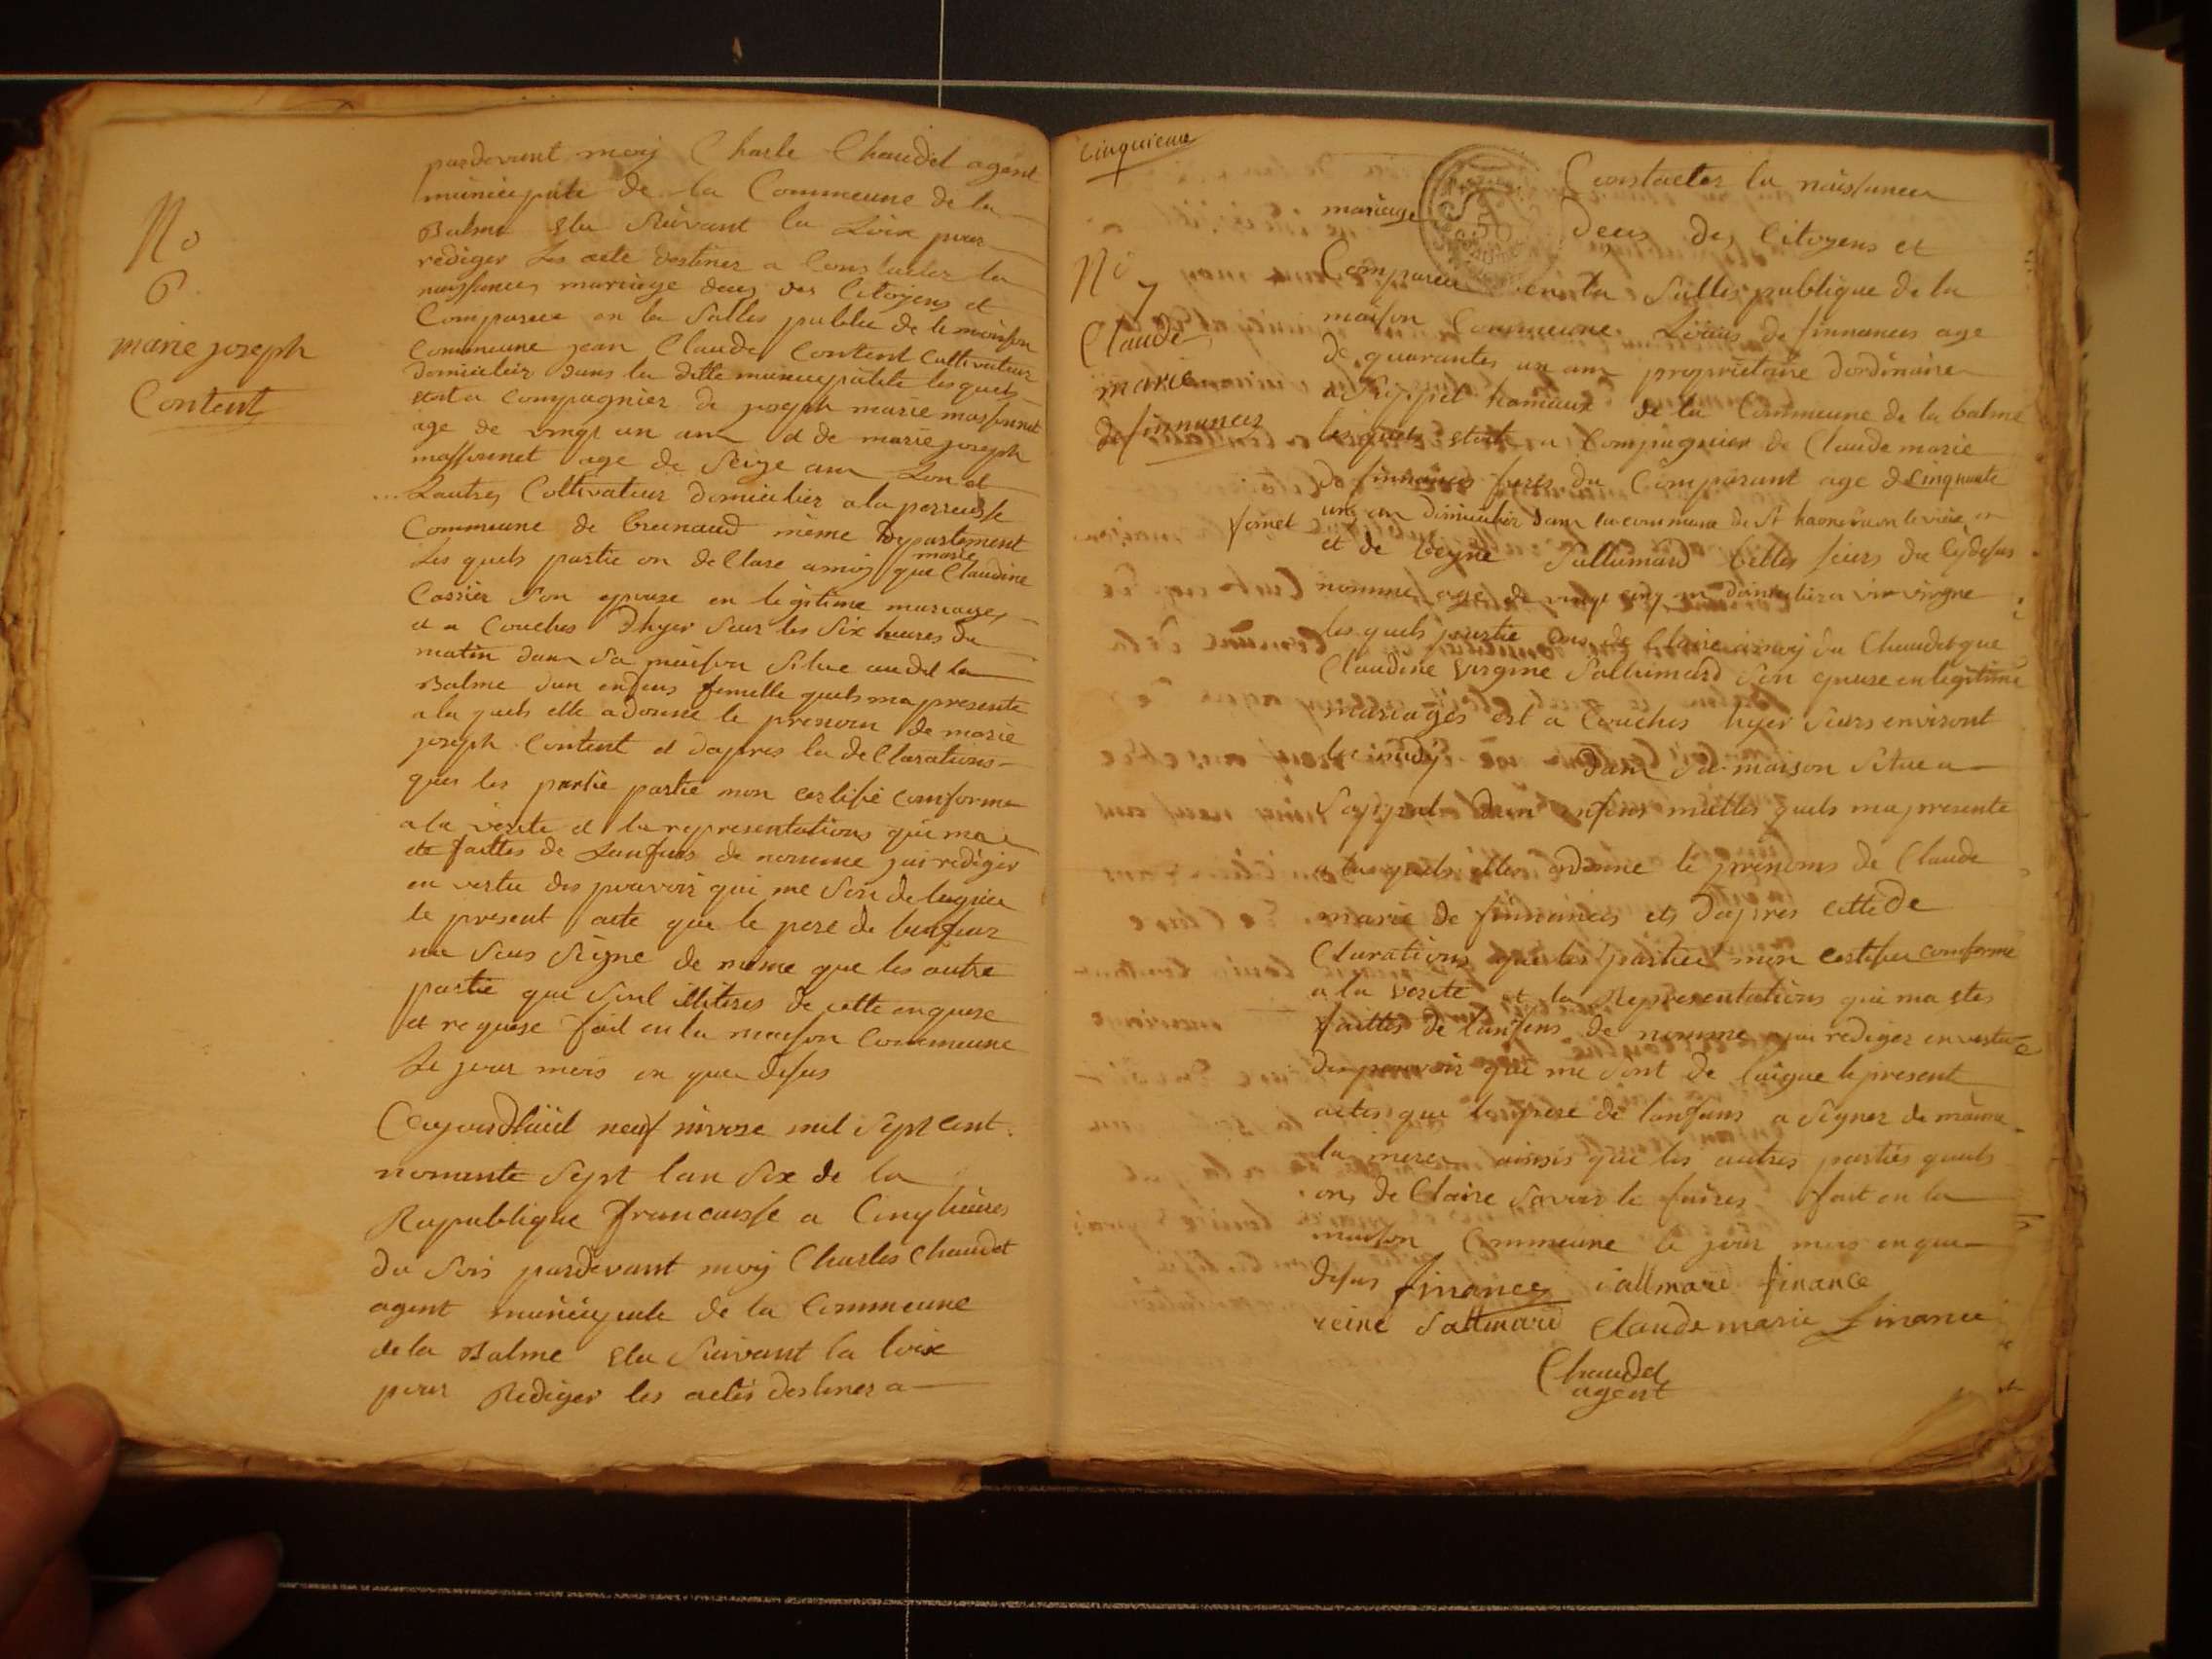 No
6
marie joseph
Content
pardevant moy Charle Chaudet agent
municipale de la Commeune de la
Balme elu Suivant la Loix pour
rediger Les acte destinez a Constacter la
naissances mariage deces des Citoyens et
Comparue en la Salles publie de le maison
Commeune jean Claude Content Cultivateur
domicilier dans la ditte municipalite les quels
etait a Compagnier de joseph marie massonnet
age de vingt un ans et de marie joseph
massonnet age de Seize ans Lon et
Lautres Coltivateur domicilier a la
Commeune de même departement
Les quels partie on de Clare a moy que marie Claudine
Son epouse en legitime mariage
et a Couches dhyer Sur les Six heures du
matin dans Sa maison Situe audet la
Balme dun enfens femelle quels ma presente
a la quels elle a donné le prenom de marie
joseph Content et dapres la de Clarations
ques les partie partie mon certifié Conforme
a la vérité et la representations qui ma
ete faittes de Lenfens de nomme jai rediger
en vertu des pouvoir qui me Son de leguée
le present acte que le pere de lenfens
na Sous Signe de même que les autre
partie qui Sont illiteres de cette enquese
et requese fait en la maison Commeune
Le jour mois en que desus
Ceajourdhuit neuf nivose mil Sept Cent
nonante Sept lan Six de la
Republique francaisse a Cinq heures
du Soir pardevant moy Charles Chaudet
agent municipale de la Commeune
de la Balme elu Suivant la loix
pour Rediger les actes destines a
Cinquieme
No 7
Claude
marie
de finnances
Constacter la naissances
mariage deces des Citoyens et
Comparue en la Salles publique de la
maison Commeune Louis de finnances age
de quarantes un ans proprietaire dordinaire
a Seppet hameaux de la Commeune de la balme
les quels etait a Compagnier de Claude marie
de finnances freres du Comparant age de Cinquante
un an domicilier dans la commune de St
et de Reyne Sallumard belles seurs du Cydesus
nomme age de vingt cinq an domicilier a
les quels partie ons de Claire a moy du Chaudet que
Claudine virgine Sallumard Son epouse en legitime
mariages est a Couches hyer Seurs environt
le midy dans Sa maison Situe a
Seppet dun enfens malles quels ma presente
a les quels elles a donne le prenoms de Claude
marie de finnances et dapres cette de
Clarations que les partie mon certifie conforme
a la verite et la Representations qui ma etes
faittes de lanfens de nomme jai rediger en vertue
des pouvoir qui me Sont de laigue le present
actes que le pere de lanfans a Signer de même
la mere ainsis que les autres parties quels
ons de Claire Savoir le faires fait en la
maison Commeune le jour mois en que
desus finances Sallmard finance
reine Sallmard Claude marie finance
Chaudet
agent